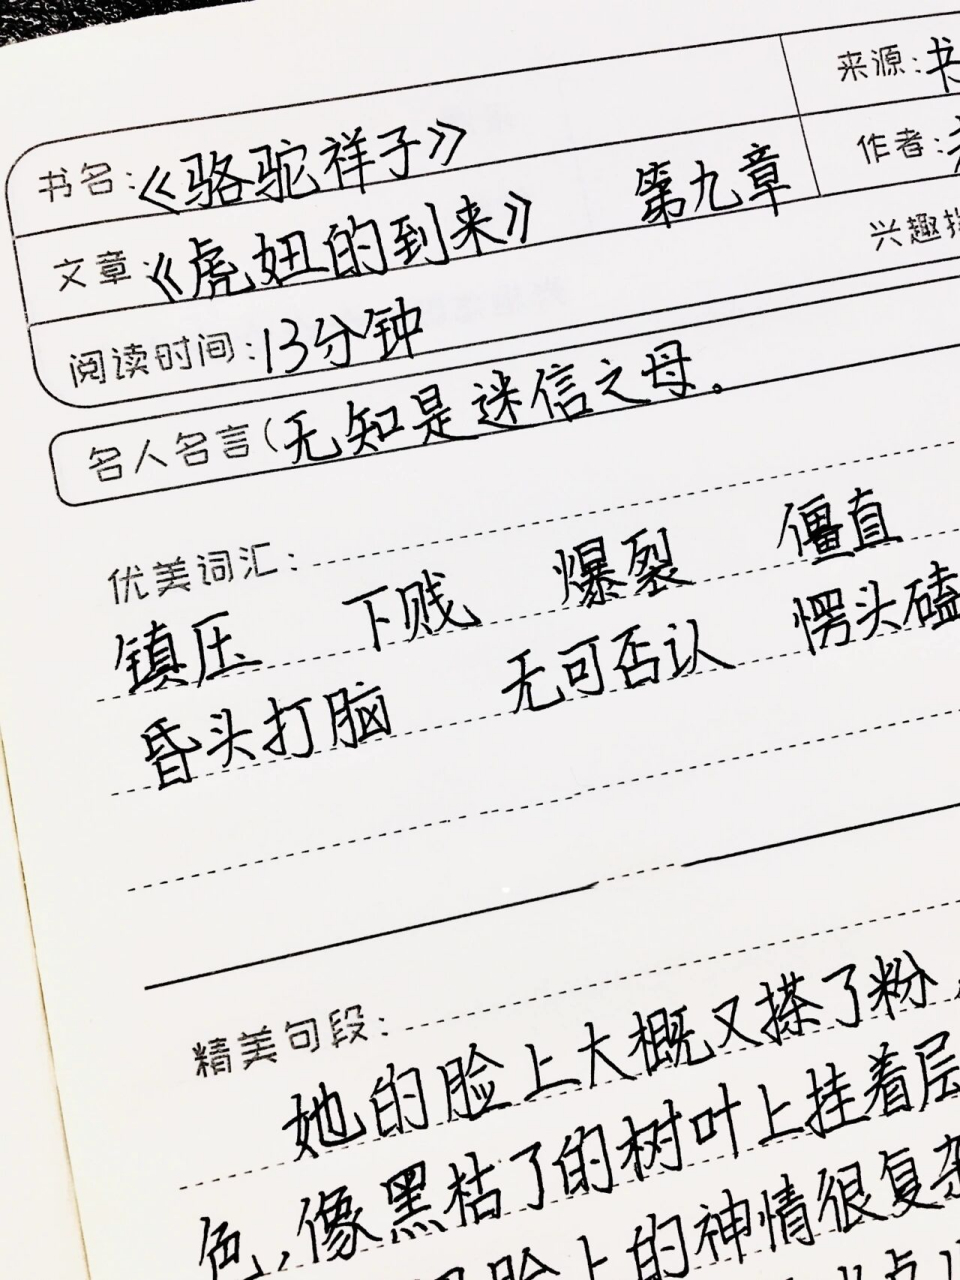 来源:书
书名:《骆驼祥子》
作者:
文章:《虎妞的到来》 第九章
兴趣指
阅读时间:13分钟
名人名言(无知是迷信之母。
优美词汇:
镇压 下贱 爆裂 僵直
昏头打脑 无可否认 愣头磕
精美句段:
她的脸上大概又搽了粉,
色,像黑枯了的树叶上挂着层
脸上的神情很复杂